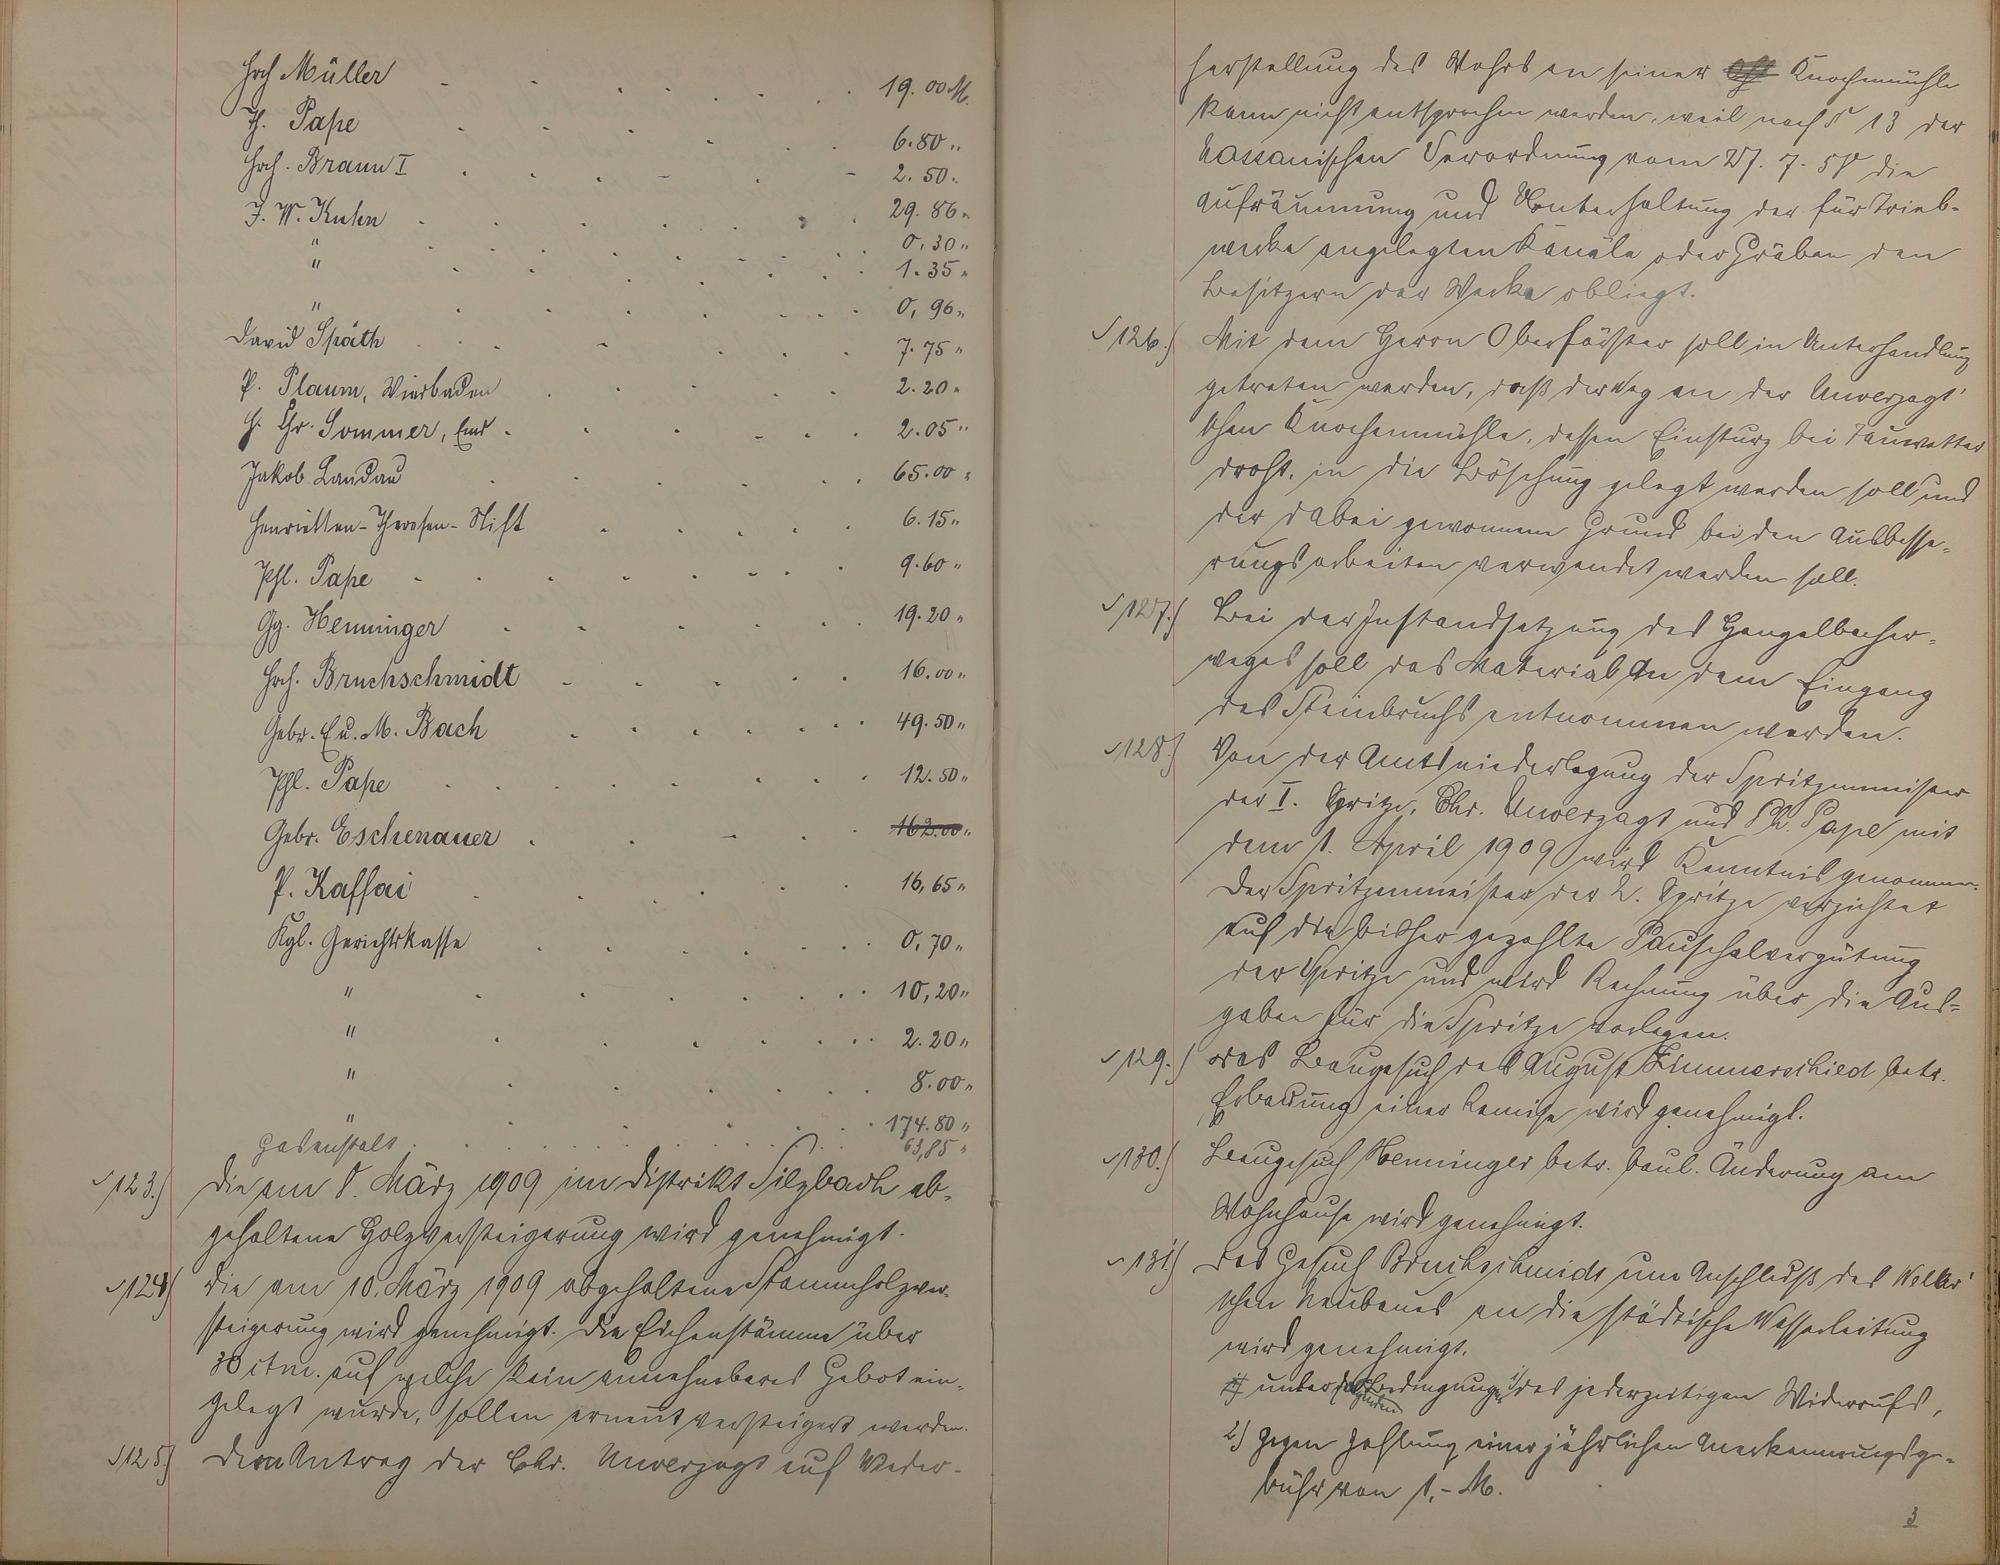 Hch Müller . . . . . . . 19.00 M.
Th. Pape . . . . . . 6.80 "
Hch. Braun I . . . . . . 2.50 "
J. W. Kuhn . . . . . . 29.86 "
" . . . . . . 0,30 "
" . . . . . . 1.35 "
" . . . . . . 0,96 "
David Späth . . . . . . 7.75 "
P. Plaum, Wiesbaden . . . . 2.20 "
H. Chr. Sommer, Ems . . . . . 2.05 "
Jakob Landau . . . . . 65.00 "
Henrietten-Theresen-Stift . . . . 6.15 "
Phl. Pape . . . . . . 9.60 "
Gg. Henninger . . . . . 19.20 "
Hch. Bruchschmidt . . . . . 16.00 "
Gebr. E u. M. Bach . . . . . 49.50 "
Phl. Pape . . . . . . 12.50 "
Gebr. Eschenauer . . . . . 162.00 "
P. Kaffai . . . . . 16,65 "
Kgl. Gerichtskasse . . . . . 0,70 "
" . . . . . . 10,20 "
" . . . . . . 2.20 "
" . . . . . . 8.00 "
" . . . . . . 174.80 "
Gasanstalt . . . . . . 63,85 "
123.) Die am 8. März 1909 im Distrikt Silzbach ab-
gehaltene Holzversteigerung wird genehmigt.
124) Die am 10. März 1909 abgehaltene Stammholzver-
steigerung wird genehmigt. Die Eichenstämme über
30 ctm. auf welche kein annehmbares Gebot ein-
gelegt wurde, sollen erneut versteigert werden.
125) Dem Antrag der Chr. Unverzagt auf Wieder-
herstellung des Wehrs an seiner Knochenmühle
kann nicht entsprochen werden, weil nach § 13 der
Nassauischen Verordnung vom 27. 7. 58 die
Aufräumung und Unterhaltung der für Trieb-
werke angelegten Kanäle oder Gräben den
Besitzern der Werke obliegt.
126.) Mit dem Herrn Oberförster soll in Unterhandlung
getreten werden, daß der Weg an der Unverzagt'
schen Knochenmühle, dessen Einsturz bei Tauwetter
droht, in die Böschung gelegt werden soll und
der dabei gewonnene Grund bei den Ausbesse-
rungsarbeiten verwendet werden soll.
127.) Bei der Instandsetzung des Hengelbacher-
weges soll das Material an dem Eingang
des Steinbruchs entnommen werden.
128.) Von der Amtsniederlegung der Spritzenmeister
der I. Spritze, Chr. Unverzagt und Ph. Pape mit
dem 1. April 1909 wird Kenntnis genommen.
Der Spritzenmeister der 2. Spritze verzichtet
auf die bisher gezahlte Pauschalvergütung
der Spritze und wird Rechnung über die Aus-
gaben für die Spritze vorlegen.
129.) Das Baugesuch des August Zimmerschied betr.
Erbauung einer Remise wird genehmigt.
130.) Baugesuch Henninger betr. baul. Änderung am
Wohnhause wird genehmigt.
131) Das Gesuch Bruchschmidt um Anschluß des Weller'
schen Neubaues an die städtische Wasserleitung
wird genehmigt.
unter folgenden Bedingungen 1) des jederzeitigen Widerrufs,
2) gegen Zahlung einer jährlichen Anerkennungsge-
bühr von 1,- M.
3